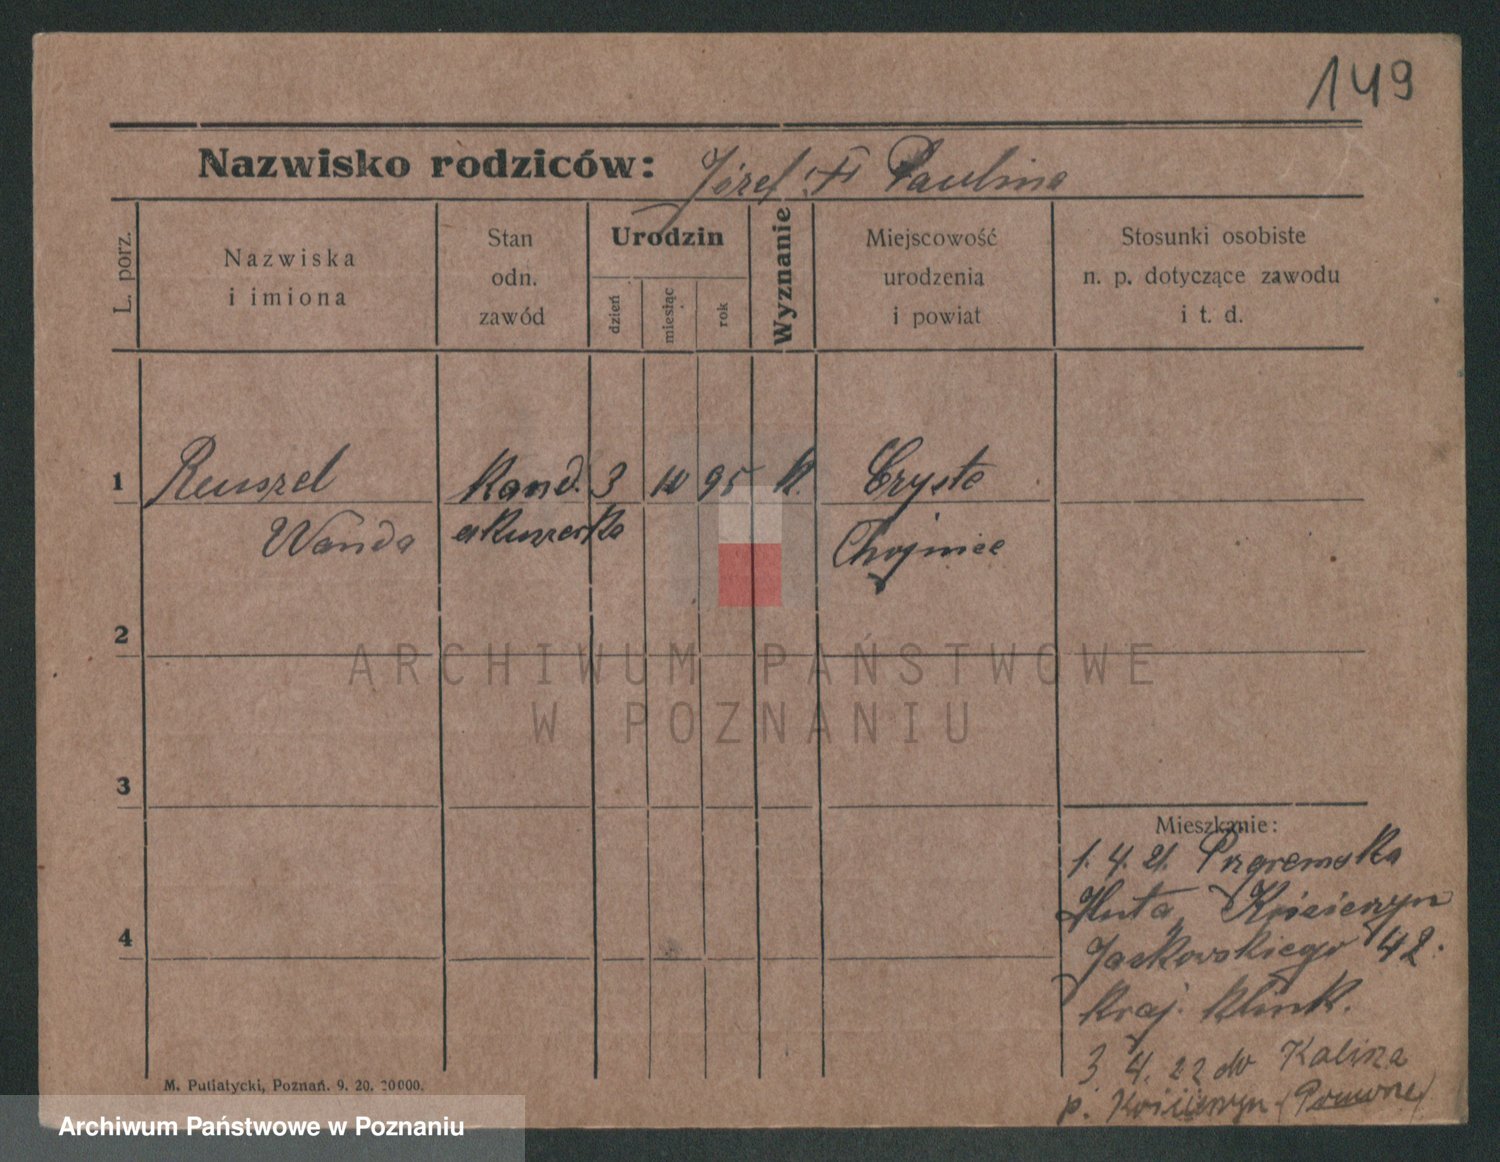 149
Nazwisko rodziców: Józef Paulina
L. porz.
Nazwiska
i imiona
Stan
odn.
zawód
Urodzin
dzień
miesiąc
rok
Wyznanie
Miejscowość
urodzenia
i powiat
Stosunki osobiste
n. p. dotyczące zawodu
i t. d.
1 Reuszel Kand. 3 10 95 k. Czyste
Wanda akuszerka Chojnice
2
ARCHIWUM PAŃSTWOWE
W POZNANIU
3
Mieszkanie:
1. 4. 21.
Huta
4
Jackowskiego 42.
Kraj. Klinik.
3. 4. 22 do Kalisza
p.
M. Putiatycki, Poznań. 9. 20. 20000.
Archiwum Państwowe w Poznaniu